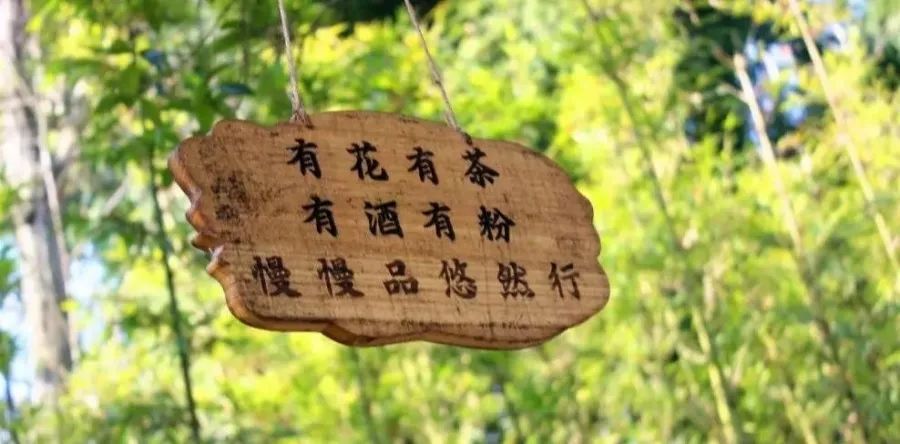 有花有茶
有酒有粉
慢慢品悠然行